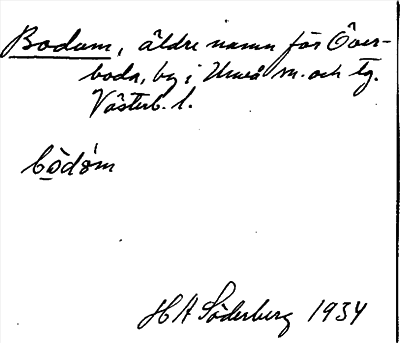 Bodum, äldre namn för Över-
boda, by i Umeå sn. och tg.
Västerb. l.
bòdóm
H A Söderberg 1934